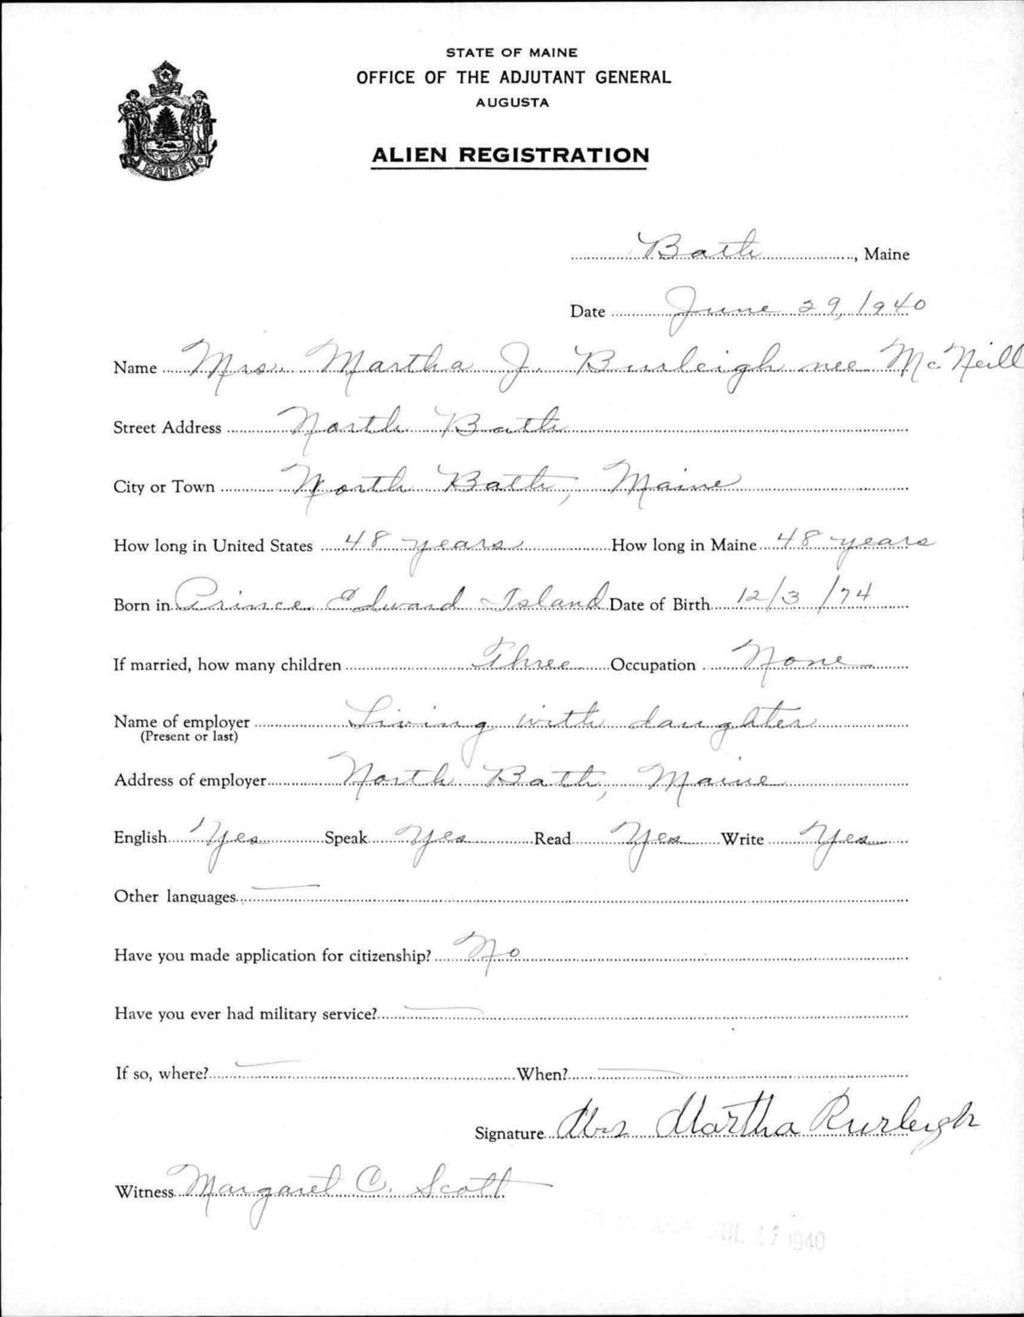 STATE OF MAINE
OFFICE OF THE ADJUTANT GENERAL
AUGUSTA
ALIEN REGISTRATION
MAINE
Bath, Maine
Date June 29, 1940
Name Mrs. Martha J. Burleigh nee McNeill
Street Address North Bath
City or Town North Bath, Maine
How long in United States 48 years How long in Maine 48 years
Born in Prince Edward Island Date of Birth 12/3/74
If married, how many children Three Occupation None
Name of employer Living with daughter
(Present or last)
Address of employer North Bath, Maine
English Yes Speak Yes Read Yes Write Yes
Other languages —
Have you made application for citizenship? No
Have you ever had military service? —
If so, where? — When? —
Signature Mrs Martha Burleigh
Witness Margaret C. Scott
JUL 17 1940